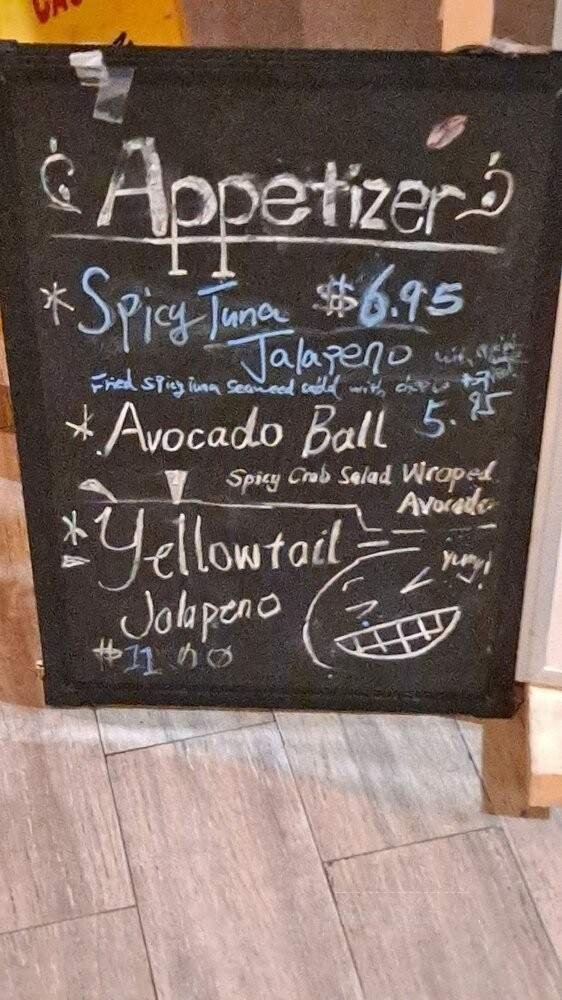 CAU
Appetizer
* Spicy Tuna $6.95
Jalapeno
Fried Spicy Tuna Seaweed
* Avocado Ball 5.95
Spicy Crab Salad Wraped
Avocado
* Yellowtail
Yumy!
Jalapeno
$11 00